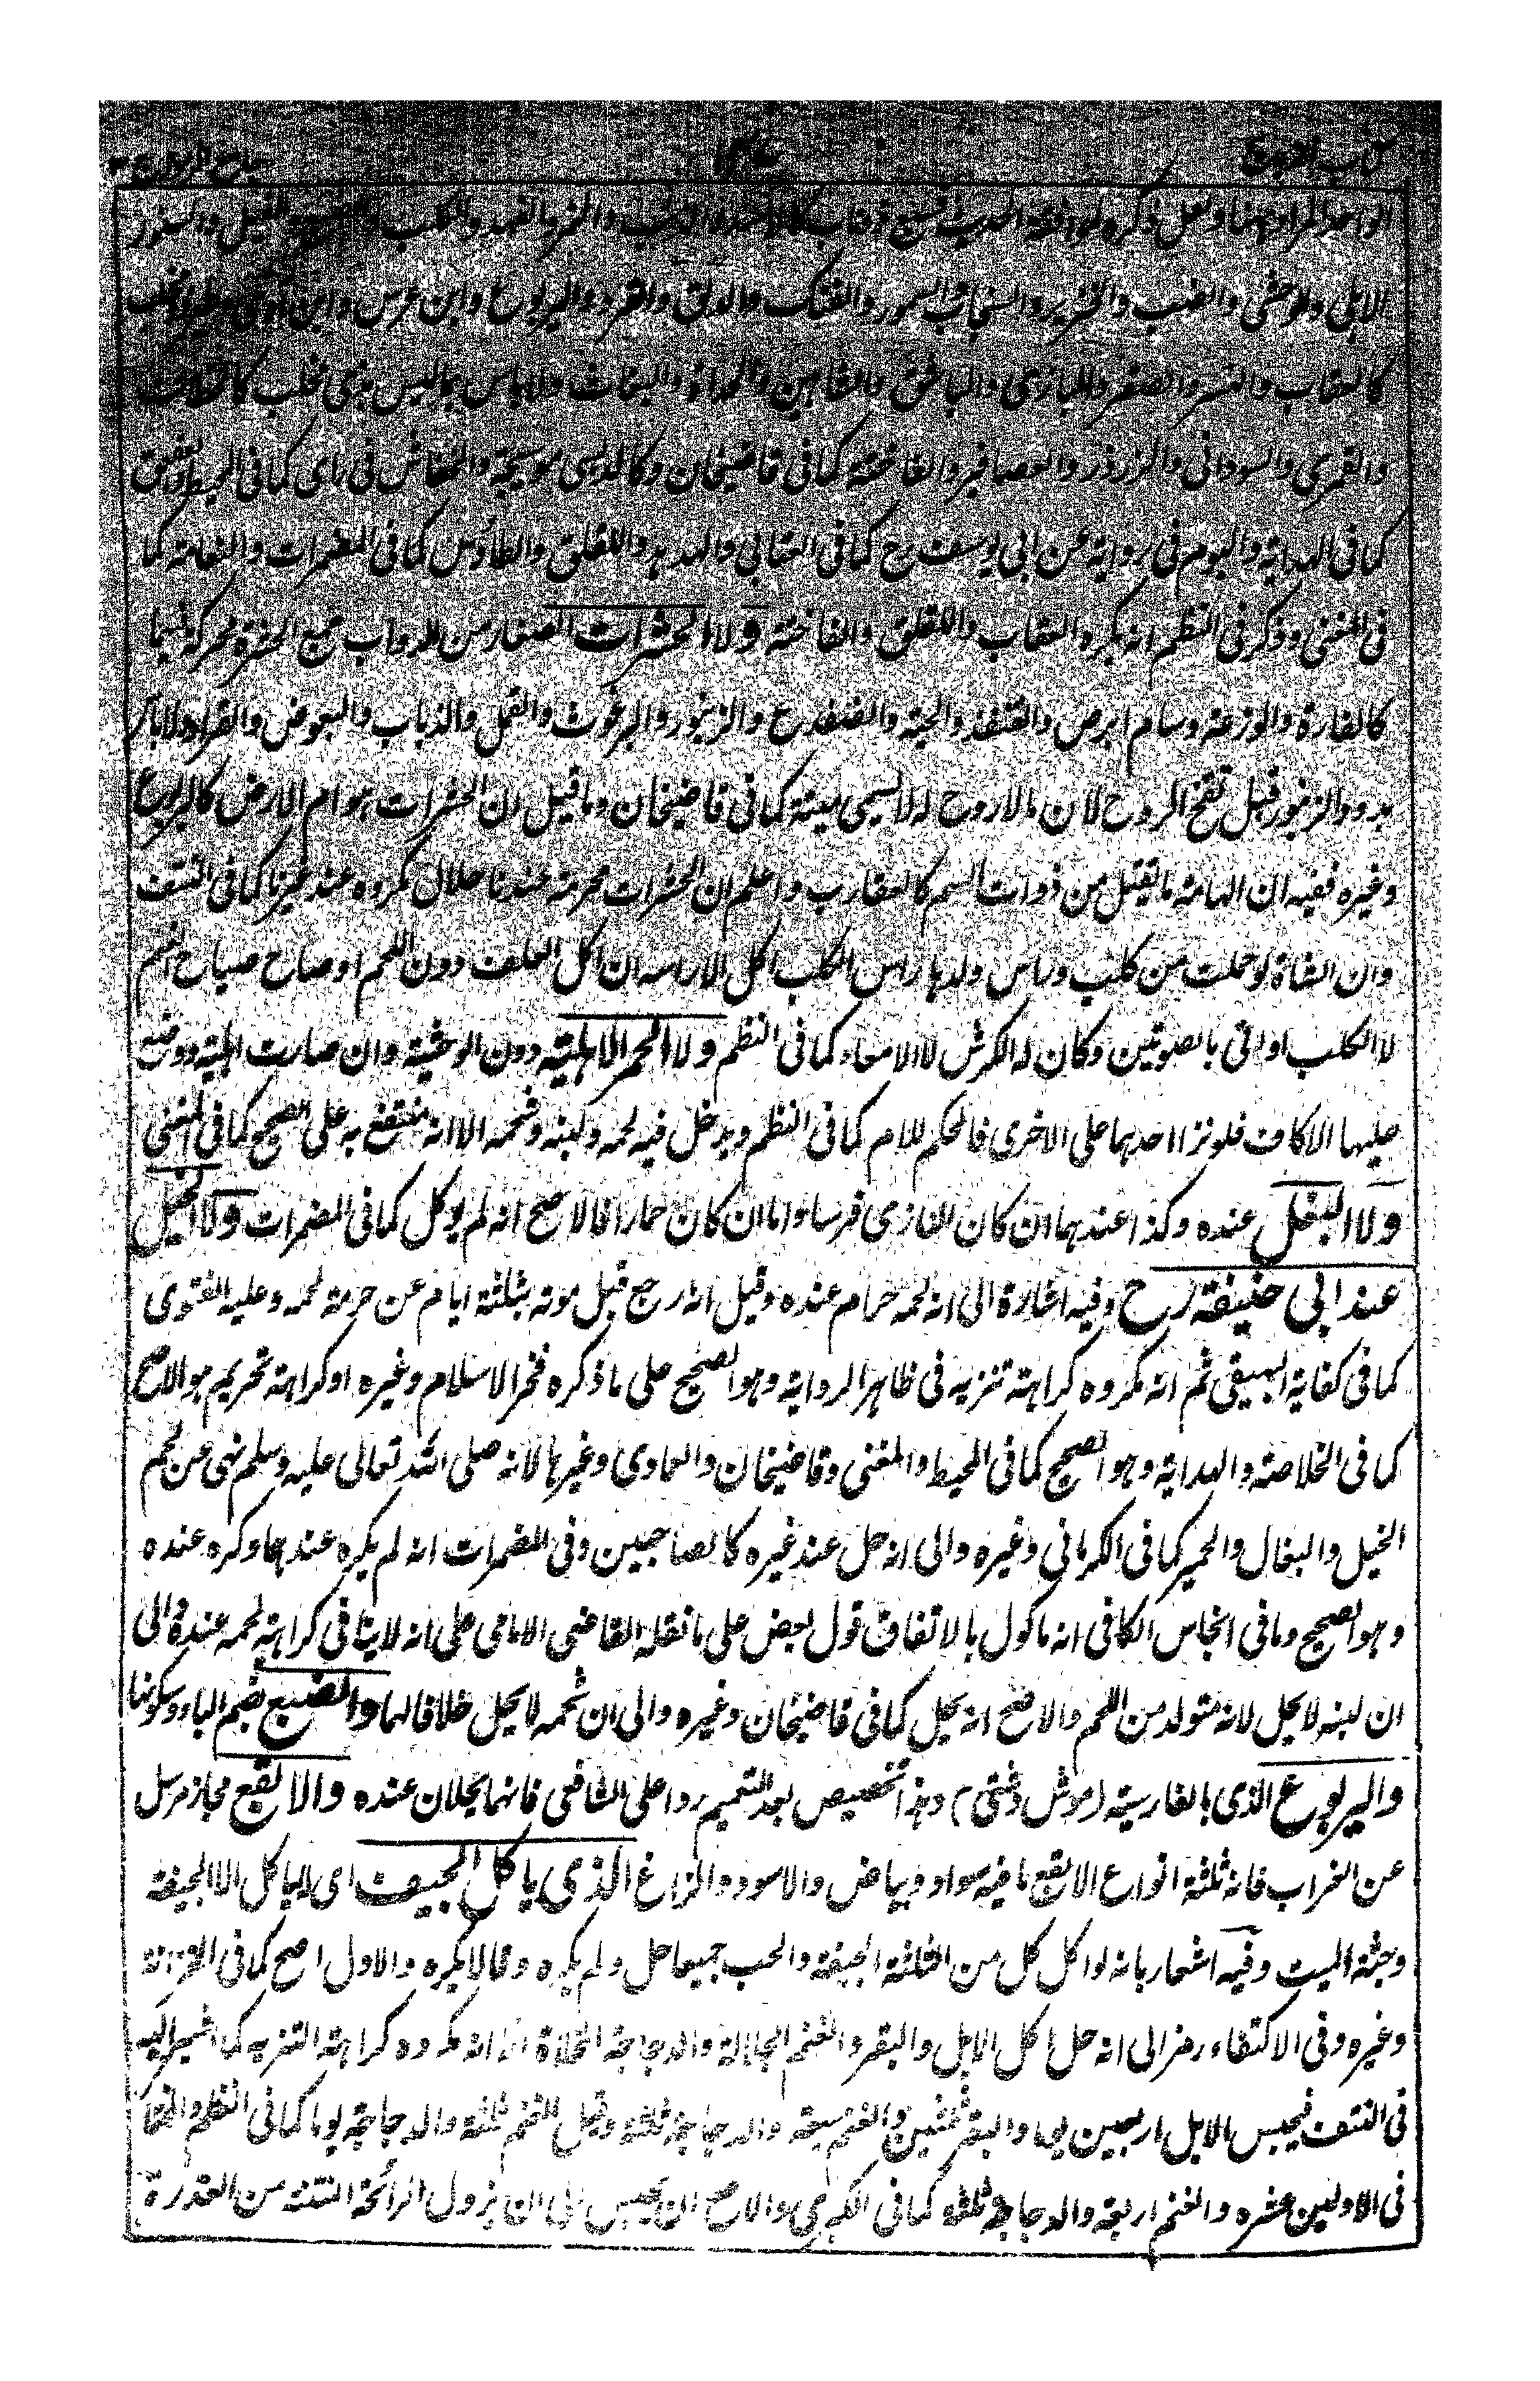 كتاب الذبائح جامع الرموز
الواحد المراد ههنا ولعل ذكره لموافقة الحديث سبع ذو ناب كالاسد والذئب والنمر والفهد والكلب والفيل والسنور
الاهلى والوحشى والضب والخنزير والسنجاب والسمور والفنك والدلق والقرد واليربوع وابن عرس وابن آوى
كالعقاب والنسر والصقر والبازى والباشق والشاهين والحدأة والبغاث ولا باس بما ليس بذى مخلب كالخطاف
والقمرى والسودانى والزرزر والعصافير والفاختة كما فى قاضيخان وكالدبسى والخفاش فى راى كما فى المحيط والعقعق
كما فى الهداية والبوم فى رواية عن ابى يوسف رح كما فى العتابى والهدهد واللقلق والطاؤس كما فى المضمرات والنعامة كما
فى المغنى وذكر فى النظم انه يكره العقاب واللقلق والفاختة ولا الحشرات الصغار من الدواب جمع الحشرة محركة فيهما
كالفارة والوزغة وسام ابرص والقنفذ والحية والضفدع والزنبور والبرغوث والقمل والذباب والبعوض والقراد ولا باس
بدود الزنبور قبل نفخ الروح لان مالا روح له لا يسمى ميتة كما فى قاضيخان وما قيل ان الحشرات هوام الارض كاليربوع
وغيره ففيه ان الهامة ما تقتل من ذوات السم كالعقارب واعلم ان الحشرات محرمة عندنا حلال مكروه عند غيرنا كما فى النتف
وان الشاة لو حملت من كلب وراس ولدها راس الكلب اكل الا راسه ان اكل العلف دون اللحم او صاح صياح الغنم
لا الكلب او اتى بالصوتين وكان له الكرش لا الامعاء كما فى النظم ولا الحمر الاهلية دون الوحشية وان صارت اهلية ووضع
عليها الاكاف فلو نزا احدهما على الاخرى فالحكم للام كما فى النظم ويدخل فيه لحمه ولبنه وشحمه الا انه منتفع به على الصحيح كما فى المغنى
ولا البغل عنده وكذا عندهما ان كان النازى فرسا واما ان كان حمارا فالاصح انه لم يوكل كما فى المضمرات ولا الخيل
عند ابى حنيفة رح وفيه اشارة الى انه لحمه حرام عنده وقيل انه رجع قبل موته بثلثة ايام عن حرمة لحمه وعليه الفتوى
كما فى كفاية البيهقى ثم انه مكروه كراهة تنزيه فى ظاهر الرواية وهو الصحيح على ما ذكره فخر الاسلام وغيره او كراهة تحريم هو الاصح
كما فى الخلاصة والهداية وهو الصحيح كما فى المحيط والمغنى وقاضيخان والعمادى وغيرها لانه صلى الله تعالى عليه وسلم نهى عن لحم
الخيل والبغال والحمير كما فى الكرمانى وغيره والى انه حل عند غيره كالصاحبين وفى المضمرات انه لم يكره عندهما وكره عنده
وهو الصحيح وما فى انجاس الكافى انه ماكول بالاتفاق قول بعض على ما نقله القاضى الامامى على انه لا ينافى كراهية لحمه عنده والى
ان لبنه لا يحل لانه متولد من اللحم والاصح انه يحل كما فى قاضيخان وغيره والى ان شحمه لا يحل خلافا لهما والضبع بضم الباء وسكونها
واليربوع الذى بالفارسية (موش دشتى) وهذا تخصيص بعد التعميم ردا على الشافعى فانهما يحلان عنده والابقع مجاز مرسل
عن الغراب فانه ثلثة انواع الابقع ما فيه سواد وبياض والاسود والزاغ الذى ياكل الجيف اى لا ياكل الا الجيفة
وجثة الميت وفيه اشعار بانه لو اكل كل من الثلثة الجيفة والحب جميعا حل ولم يكره وقالا يكره والاول اصح كما فى الخزانة
وغيره وفى الاكتفاء رمز الى انه حل اكل الابل والبقر والغنم الجلالة والدجاجة المخلاة الا انه مكروه كراهة التنزيه كما اشير اليه
فى النتف فيحبس الابل اربعين يوما والبقر ثلثين والغنم سبعة والدجاجة ثلثة وقيل للغنم ثلثة والدجاجة يوما كما فى النظم
فى الاولين عشره والغنم اربعة والدجاجة ثلثة كما فى الكبرى والاصح ان يحبس الى ان يزول الرائحة المنتنة من القذرة